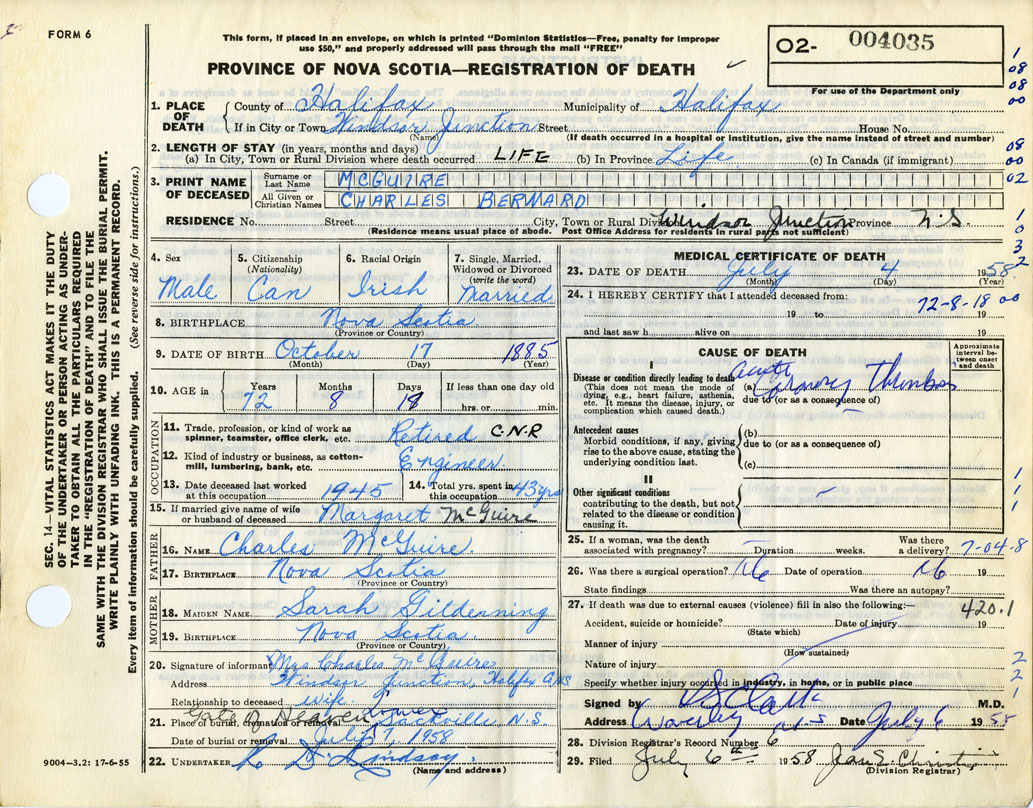 FORM 6
This form, if placed in an envelope, on which is printed "Dominion Statistics—Free, penalty for improper
use $50," and properly addressed will pass through the mail "FREE"
PROVINCE OF NOVA SCOTIA—REGISTRATION OF DEATH
02- 004035
For use of the Department only
1. PLACE OF DEATH
County of Halifax Municipality of Halifax
If in City or Town Windsor Junction Street House No.
(Name) (If death occurred in a hospital or institution, give the name instead of street and number)
2. LENGTH OF STAY (in years, months and days)
(a) In City, Town or Rural Division where death occurred LIFE (b) In Province Life (c) In Canada (if immigrant)
3. PRINT NAME OF DECEASED
Surname or Last Name MCGUIRE
All Given or Christian Names CHARLES BERNARD
RESIDENCE No. Street City, Town or Rural Div Windsor Junction Province N.S.
(Residence means usual place of abode. Post Office Address for residents in rural parts not sufficient)
4. Sex Male
5. Citizenship (Nationality) Can
6. Racial Origin Irish
7. Single, Married, Widowed or Divorced (write the word) Married
8. BIRTHPLACE Nova Scotia
(Province or Country)
9. DATE OF BIRTH October 17 1885
(Month) (Day) (Year)
10. AGE in Years 72 Months 8 Days 18 If less than one day old hrs. or min.
OCCUPATION
11. Trade, profession, or kind of work as spinner, teamster, office clerk, etc. Retired C.N.R
12. Kind of industry or business, as cotton-mill, lumbering, bank, etc. Engineer
13. Date deceased last worked at this occupation 1945
14. Total yrs. spent in this occupation 43 yrs
15. If married give name of wife or husband of deceased Margaret McGuire
FATHER
16. NAME Charles McGuire
17. BIRTHPLACE Nova Scotia
(Province or Country)
MOTHER
18. MAIDEN NAME Sarah Gildenning
19. BIRTHPLACE Nova Scotia
(Province or Country)
20. Signature of informant Mrs Charles McGuire
Address Windsor Junction, Halifax
Relationship to deceased wife
21. Place of burial, cremation or removal Gate of Heaven Lower Sackville N.S.
Date of burial or removal July 7, 1958
22. UNDERTAKER Lindsay
(Name and address)
9004-3.2: 17-6-55
MEDICAL CERTIFICATE OF DEATH
23. DATE OF DEATH July 4 1958
(Month) (Day) (Year)
24. I HEREBY CERTIFY that I attended deceased from:
72-8-18 00
19 to 19
and last saw h alive on 19
CAUSE OF DEATH
Approximate interval between onset and death
I
Disease or condition directly leading to death
(This does not mean the mode of dying, e.g., heart failure, asthenia, etc. It means the disease, injury, or complication which caused death.)
(a) acute Coronary Thrombosis
due to (or as a consequence of)
Antecedent causes
Morbid conditions, if any, giving rise to the above cause, stating the underlying condition last.
(b)
due to (or as a consequence of)
(c)
II
Other significant conditions
contributing to the death, but not related to the disease or condition causing it.
25. If a woman, was the death associated with pregnancy? Duration weeks. Was there a delivery?
7-04-8
26. Was there a surgical operation? No Date of operation No 19
State findings Was there an autopsy?
27. If death was due to external causes (violence) fill in also the following:— 420.1
Accident, suicide or homicide? Date of injury 19
(State which)
Manner of injury
(How sustained)
Nature of injury
Specify whether injury occurred in industry, in home, or in public place
Signed by Clark M.D.
Address Waverley N.S Date July 6 1958
28. Division Registrar's Record Number 6
29. Filed July 6th 1958
(Division Registrar)
SEC. 14—VITAL STATISTICS ACT MAKES IT THE DUTY
OF THE UNDERTAKER OR PERSON ACTING AS UNDER-
TAKER TO OBTAIN ALL THE PARTICULARS REQUIRED
IN THE "REGISTRATION OF DEATH" AND TO FILE THE
SAME WITH THE DIVISION REGISTRAR WHO SHALL ISSUE THE BURIAL PERMIT.
WRITE PLAINLY WITH UNFADING INK. THIS IS A PERMANENT RECORD.
Every item of information should be carefully supplied. (See reverse side for instructions.)
1
08
08
00
08
00
02
1
0
3
2
1
1
1
2
2
1